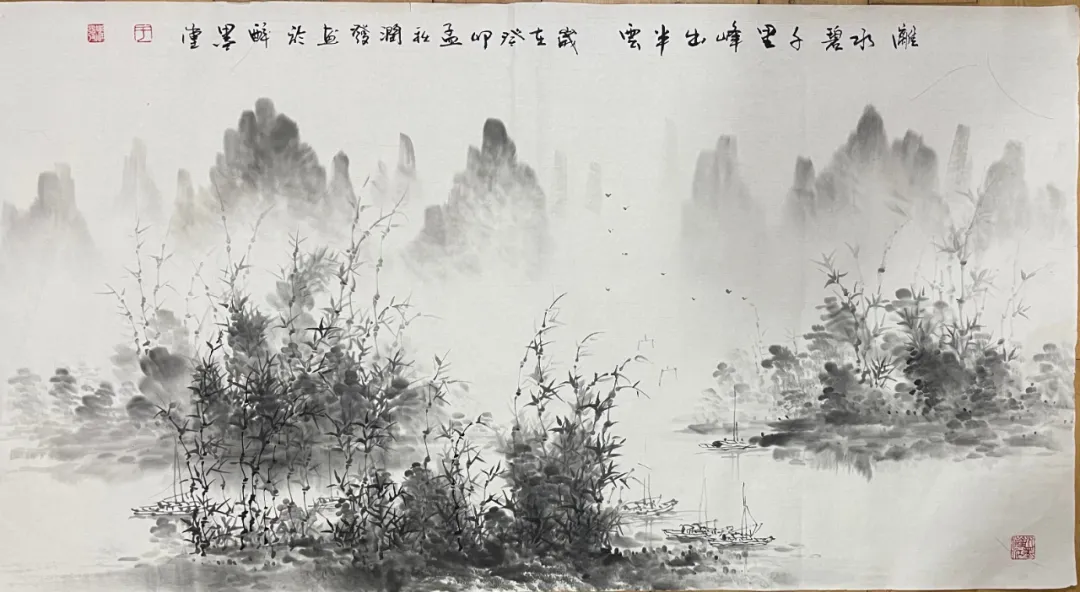 灕水碧千里峰出半雲 歲在癸卯孟秋潤發画於醉墨堂